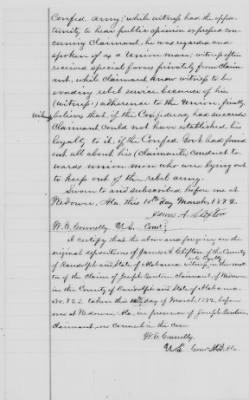 Confed. army; while witness had the oppor-
tunity to hear public opinion expressed con-
cerning Claimant, he was regarded and
spoken of as a Union man; witness often
received special favors privately from Claim-
ant, while Claimant knew witness to be
evading rebel service because of his
(witness') adherence to the Union finally
believes that if the Confederacy had succeeded
Claimant could not have established his
loyalty to it, if the Confed. Govt had found
out all about his (Claimant's) conduct to-
wards Union men who were lying out
to keep out of the rebel army.
Sworn to and subscribed before me at
Wedowee, Ala. this 10th day March, 1882.
James A. Clifton
W. C. Connelly U.S. Com'r
I certify that the above and foregoing are the
original depositions of James A. Clifton of the County
of Randolph and State of Alabama witness, in the mat-
ter of the claim of Joseph Benton claimant, of Wedowee
in the County of Randolph and State of Alabama
No. 822 taken this 10th day of March, 1882, before
me at Wedowee Ala. in presence of Joseph Benton
claimant, no counsel in the case
W. C. Connelly
U.S. Com'r Ala.